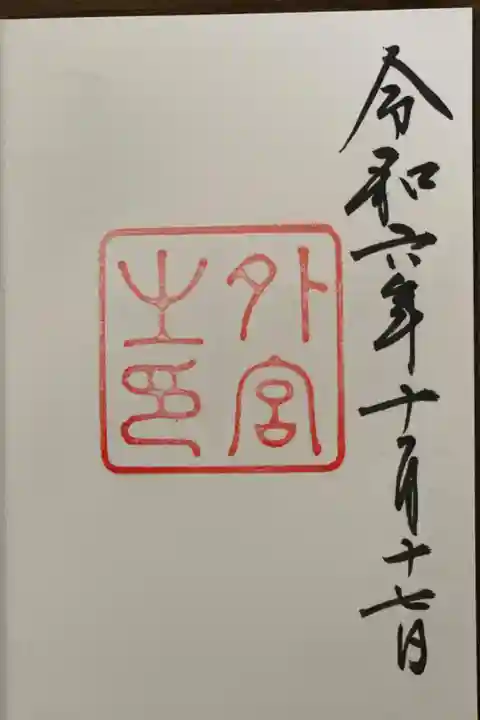 令和六年十一月十七日
外宮
之印